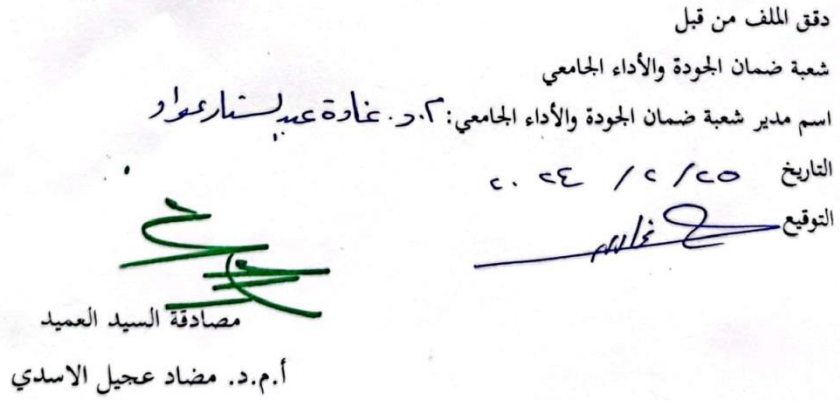 دقق الملف من قبل
شعبة ضمان الجودة والأداء الجامعي
اسم مدير شعبة ضمان الجودة والأداء الجامعي: م.د. غادة عبد الستار عواد
التاريخ ٢٥ / ٢ / ٢٠٢٤
التوقيع
مصادقة السيد العميد
أ.م.د. مضاد عجيل الاسدي